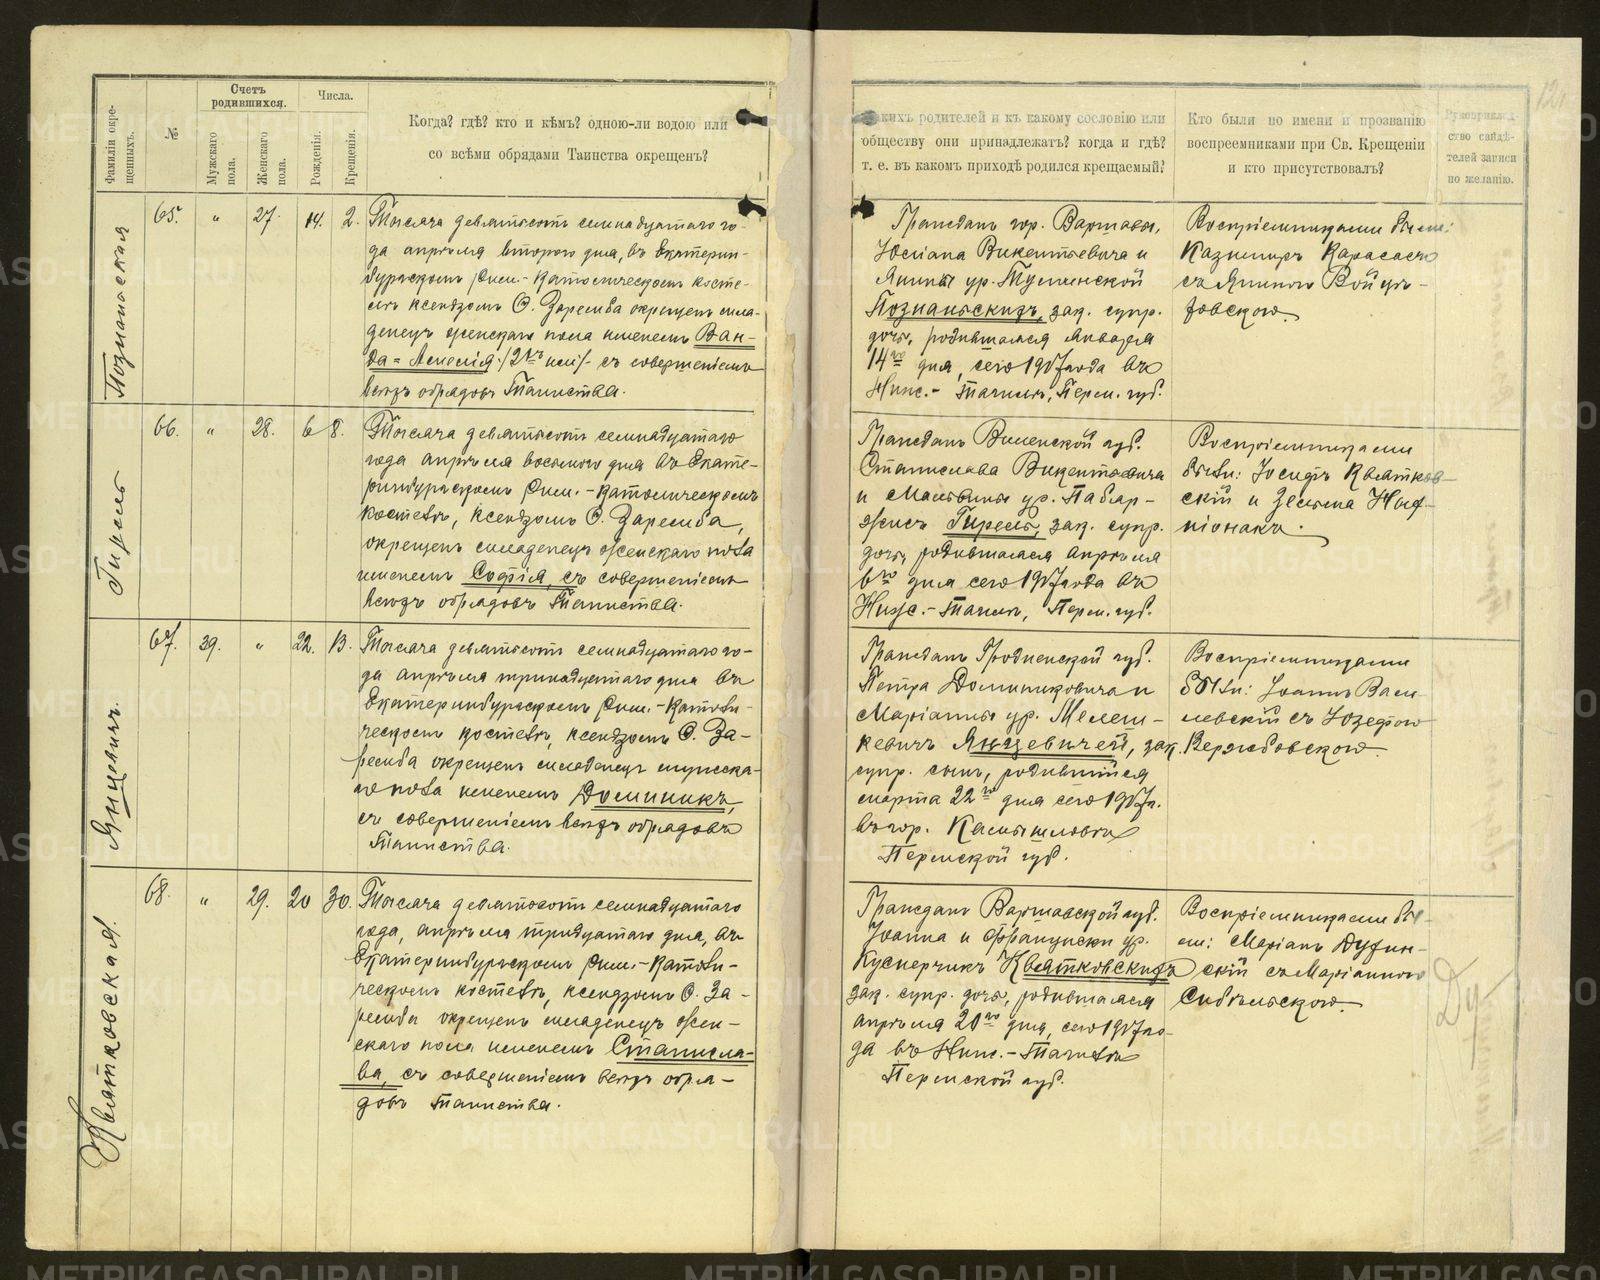 Фамиліи окре-
щенныхъ.
№
Счетъ
родившихся.
Мужскаго
пола.
Женскаго
пола.
Числа.
Рожденія.
Крещенія.
Когда? гдѣ? кто и кѣмъ? одною-ли водою или
со всѣми обрядами Таинства окрещенъ?
какихъ родителей и къ какому сословію или
обществу они принадлежатъ? когда и гдѣ?
т. е. въ какомъ приходѣ родился крещаемый?
Кто были по имени и прозванію
воспреемниками при Св. Крещеніи
и кто присутствовалъ?
Рукоприклад-
ство свидѣ-
телей записи
по желанію.
Познаньская
65. " 27. 14. 2.
Тысяча девятьсотъ семнадцатаго го-
да апрѣля второго дня, въ Екатерин-
бургскомъ Рим.-Католическомъ косте-
лѣ ксендзомъ О. Заремба окрещенъ мла-
денецъ женскаго пола именемъ Ван-
да = Анеля /2хъ им/- съ совершеніемъ
всѣхъ обрядовъ Таинства.
Гражданъ гор. Варшавы,
Юліана Викентьевича и
Янины ур. Тулинской
Познаньскихъ, зак. супр.
дочь, родившаяся января
14го дня, сего 1917 года въ
Ниж.- Тагилѣ, Перм. губ.
Воспріемниками были:
Казимиръ Карасосъ
съ Яниною Войцѣ-
ховскою.
Гирель
66. " 28. 6 8.
Тысяча девятьсотъ семнадцатаго
года апрѣля восьмого дня въ Екате-
ринбургскомъ Рим.-Католическомъ
костелѣ, ксендзомъ О. Заремба,
окрещенъ младенецъ женскаго пола
именемъ Софія, съ совершеніемъ
всѣхъ обрядовъ Таинства.
Гражданъ Виленской губ.
Станислава Викентьевича
и Мальвины ур. Паблар-
жись Гирель, зак. супр.
дочь, родившаяся апрѣля
6го дня сего 1917 года въ
Ниж.-Тагилѣ, Перм. губ.
Воспріемниками
были: Іосифъ Квятков-
скій и Зельма
Янцевичъ.
67. 39. " 22. 13.
Тысяча девятьсотъ семнадцатаго го-
да апрѣля тринадцатаго дня въ
Екатеринбургскомъ Рим.-Католи-
ческомъ костелѣ, ксендзомъ О. За-
ремба окрещенъ младенецъ мужска-
го пола именемъ Доминикъ,
съ совершеніемъ всѣхъ обрядовъ
Таинства.
Гражданъ Гродненской губ.
Петра Доминиковича и
Маріанны ур. Мелеш-
кевичъ Янцевичей, зак.
супр. сынъ, родившійся
марта 22го дня сего 1917 г.
въ гор. Камышловѣ
Пермской губ.
Воспріемниками
были: Іоаннъ Васи-
левскій съ Юзефою
Вержбовскою.
Квятковская.
68. " 29. 20 30.
Тысяча девятьсотъ семнадцатаго
года, апрѣля тридцатаго дня, въ
Екатеринбургскомъ Рим.-Католи-
ческомъ костелѣ, ксендзомъ О. За-
ремба окрещенъ младенецъ жен-
скаго пола именемъ Станисла-
ва, съ совершеніемъ всѣхъ обря-
довъ Таинства.
Гражданъ Варшавской губ.
Іоанна и Францишки ур.
Куснерчикъ Квятковскихъ
зак. супр. дочь, родившаяся
апрѣля 20го дня, сего 1917 го-
да въ Ниж.-Тагилѣ
Пермской губ.
Воспріемниками бы-
ли: Маріанъ Дудзин-
скій съ Маріанною
Сибѣльскою.
METRIKI.GASO-URAL.RU